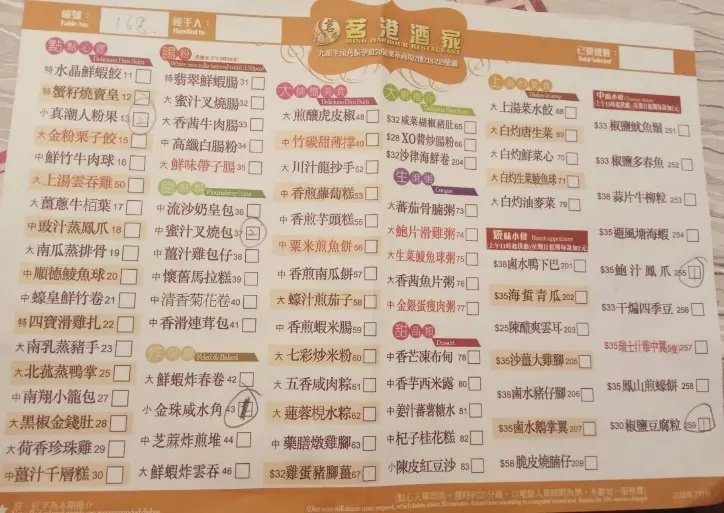 檯號：
Table No.
168
經手人：
Handled by
茗港酒家
MING HARBOUR RESTAURANT
已選總數
Total Selected
點點心意
Delicious Dim Sum
特 水晶鮮蝦餃 11
特 蟹籽燒賣皇 12
小 真潮人粉果 13
大 金粉栗子餃 15
中 鮮竹牛肉球 16
大 上湯雲吞雞 50
大 薑蔥牛栢葉 17
中 豉汁蒸鳳爪 18
大 南瓜蒸排骨 19
中 順德鯪魚球 20
中 蠔皇鮮竹卷 21
特 四寶滑雞扎 22
大 南乳蒸豬手 23
大 北菰蒸鴨掌 25
中 南翔小籠包 27
大 黑椒金錢肚 28
大 荷香珍珠雞 29
中 薑汁千層糕 30
腸粉
特 翡翠鮮蝦腸 31
大 蜜汁叉燒腸 32
大 香茜牛肉腸 33
中 高纖白腸粉 34
大 鮮味帶子腸 35
中 流沙奶皇包 36
中 蜜汁叉燒包 37
中 薑汁雞包仔 38
中 懷舊馬拉糕 39
中 清香菊花卷 40
中 香滑連茸包 41
Fried & Baked
大 鮮蝦炸春卷 42
小 金珠咸水角 43
中 芝蔴炸煎堆 44
大 鮮蝦炸雲吞 46
Delicious Dim Sum
大 煎釀虎皮椒 48
中 竹碳甜薄撐 49
大 川汁龍抄手 52
中 香煎蘿蔔糕 53
中 香煎芋頭糕 55
中 粟米煎魚餅 56
中 香煎南瓜餅 57
大 蠔汁煎茄子 58
中 香煎蝦米腸 59
大 七彩炒米粉 60
大 五香咸肉粽 61
大 蓮蓉梘水粽 62
中 藥膳燉雞腳 63
$32 雞蛋豬腳薑 67
$32 咸菜胡椒豬肚 65
$28 XO醬炒腸粉 66
$32 沙律海鮮卷 204
生滾粥
Congee
大 蕃茄骨腩粥 73
大 鮑片滑雞粥 74
大 生菜鯪魚球粥 75
大 香茜魚片粥 76
中 金銀蛋瘦肉粥 77
甜品類
Dessert
中 香芒凍布甸 78
中 香芋西米露 80
中 姜汁蕃薯糖水 81
中 杞子桂花糕 82
小 陳皮紅豆沙 83
大 上湯菜水餃 68
大 白灼唐生菜 69
大 白灼鮮菜心 70
大 白灼生菜鯪魚球 71
大 白灼油麥菜 79
$38 鹵水鴨下巴 201
$35 海蜇青瓜 202
$25 陳醋爽雲耳 203
$35 沙薑大雞腳 205
$38 鹵水豬仔腳 206
$35 鹵水鵝掌翼 207
$58 脆皮燒腩仔 209
$33 椒鹽魷魚鬚 251
$33 椒鹽多春魚 252
$38 蒜片牛柳粒 253
$35 避風塘海蝦 254
$35 鮑汁鳳爪 255
$33 干煏四季豆 256
$35 瑞士汁雞中翼 257
$35 鳳山煎蠔餅 258
$30 椒鹽豆腐粒 259